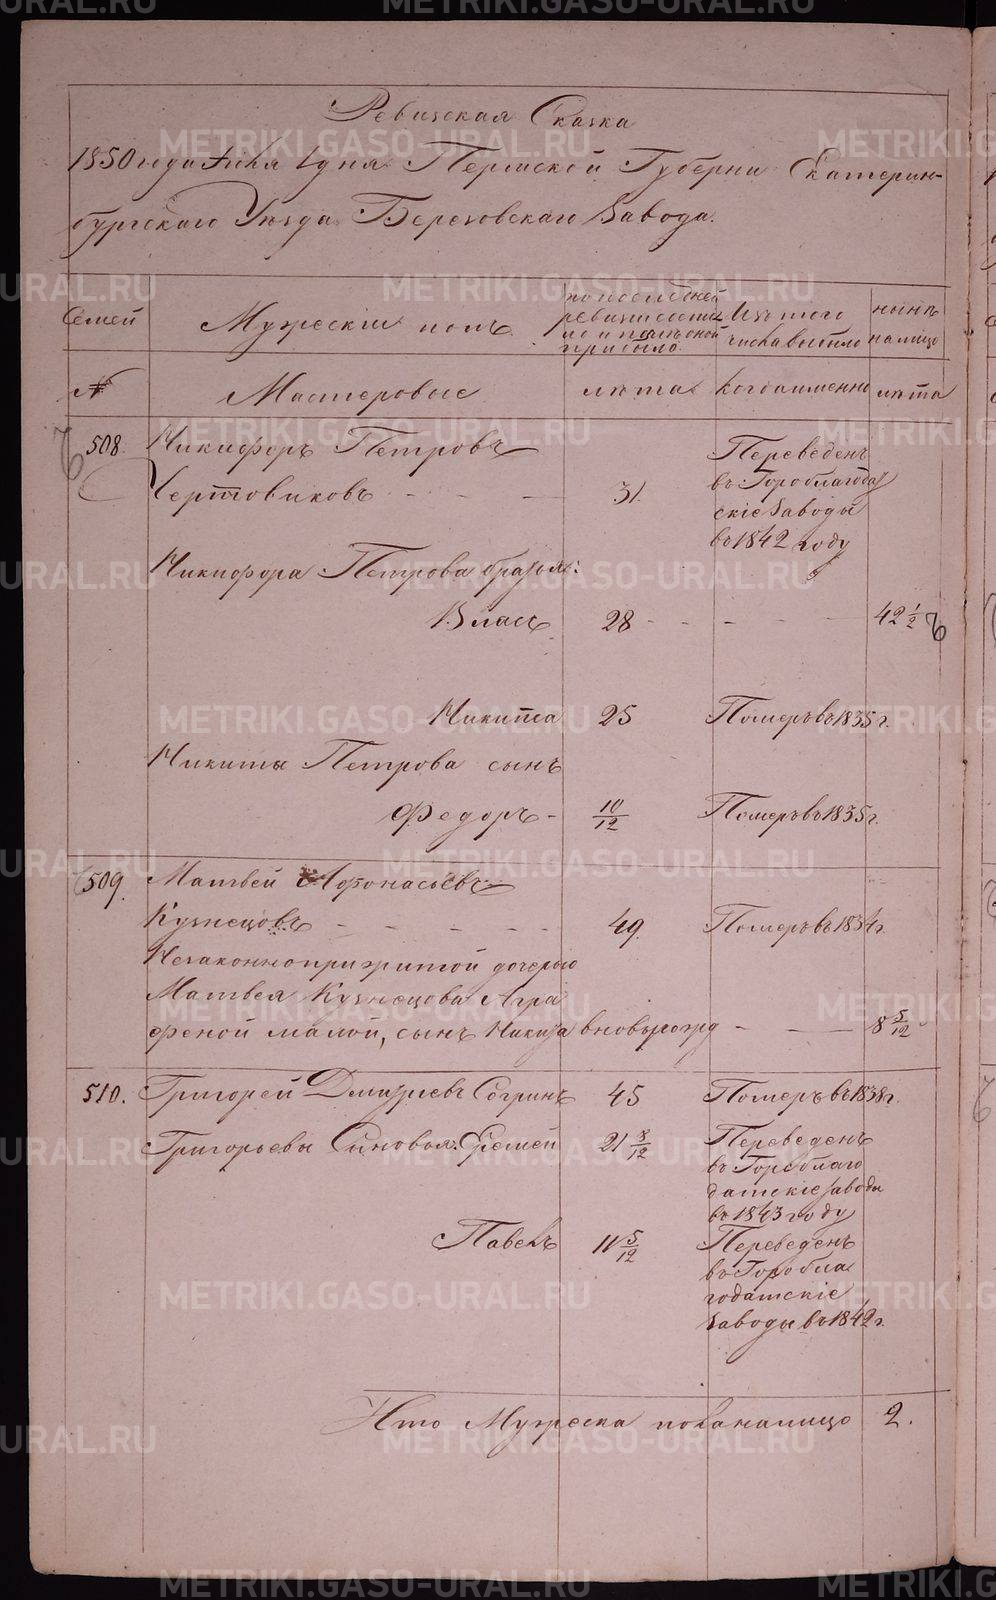 Ревизская Сказка
1850 года Июля 1 дня Пермской Губерни Екатерин-
бургскаго Уезда Березовскаго Завода.
Семей
Мужескiи полъ
по последней
ревизiи состоя
ло и после оной
прибыло.
Изъ того
числа выбыло
ныне
на лицо
№
Мастеровые
лета
когда именно
лета
508.
Никифоръ Петровъ
Чертовиковъ - - - -
31.
Переведенъ
въ Гороблагода
скiе Заводы
въ 1842 году
Никифора Петрова братья:
Власъ
28 - - - -
42 1/2
Никита
25
Померъ въ 1835 г.
Никиты Петрова сынъ
Федоръ -
10/12
Померъ въ 1835 г.
509.
Матвей Афонасьевъ
Кузнецовъ - - - - -
49.
Померъ въ 1834 г.
Незаконноприжитой дочерью
Матвея Кузнецова Агра
феной малой, сынъ Никита вновь рожд - - -
8 5/12
510.
Григорей Дмитрiевъ Согринъ
45
Померъ въ 1838 г.
Григорьевы Сыновья: Еремей
21 8/12
Переведенъ
въ Гороблаго
датскiе заводы
въ 1843 году
Павелъ
11 5/12
Переведенъ
въ Горобла
годатскiе
Заводы въ 1842 г.
Ито Мужеска пола налицо
2.
METRIKI.GASO-URAL.RU